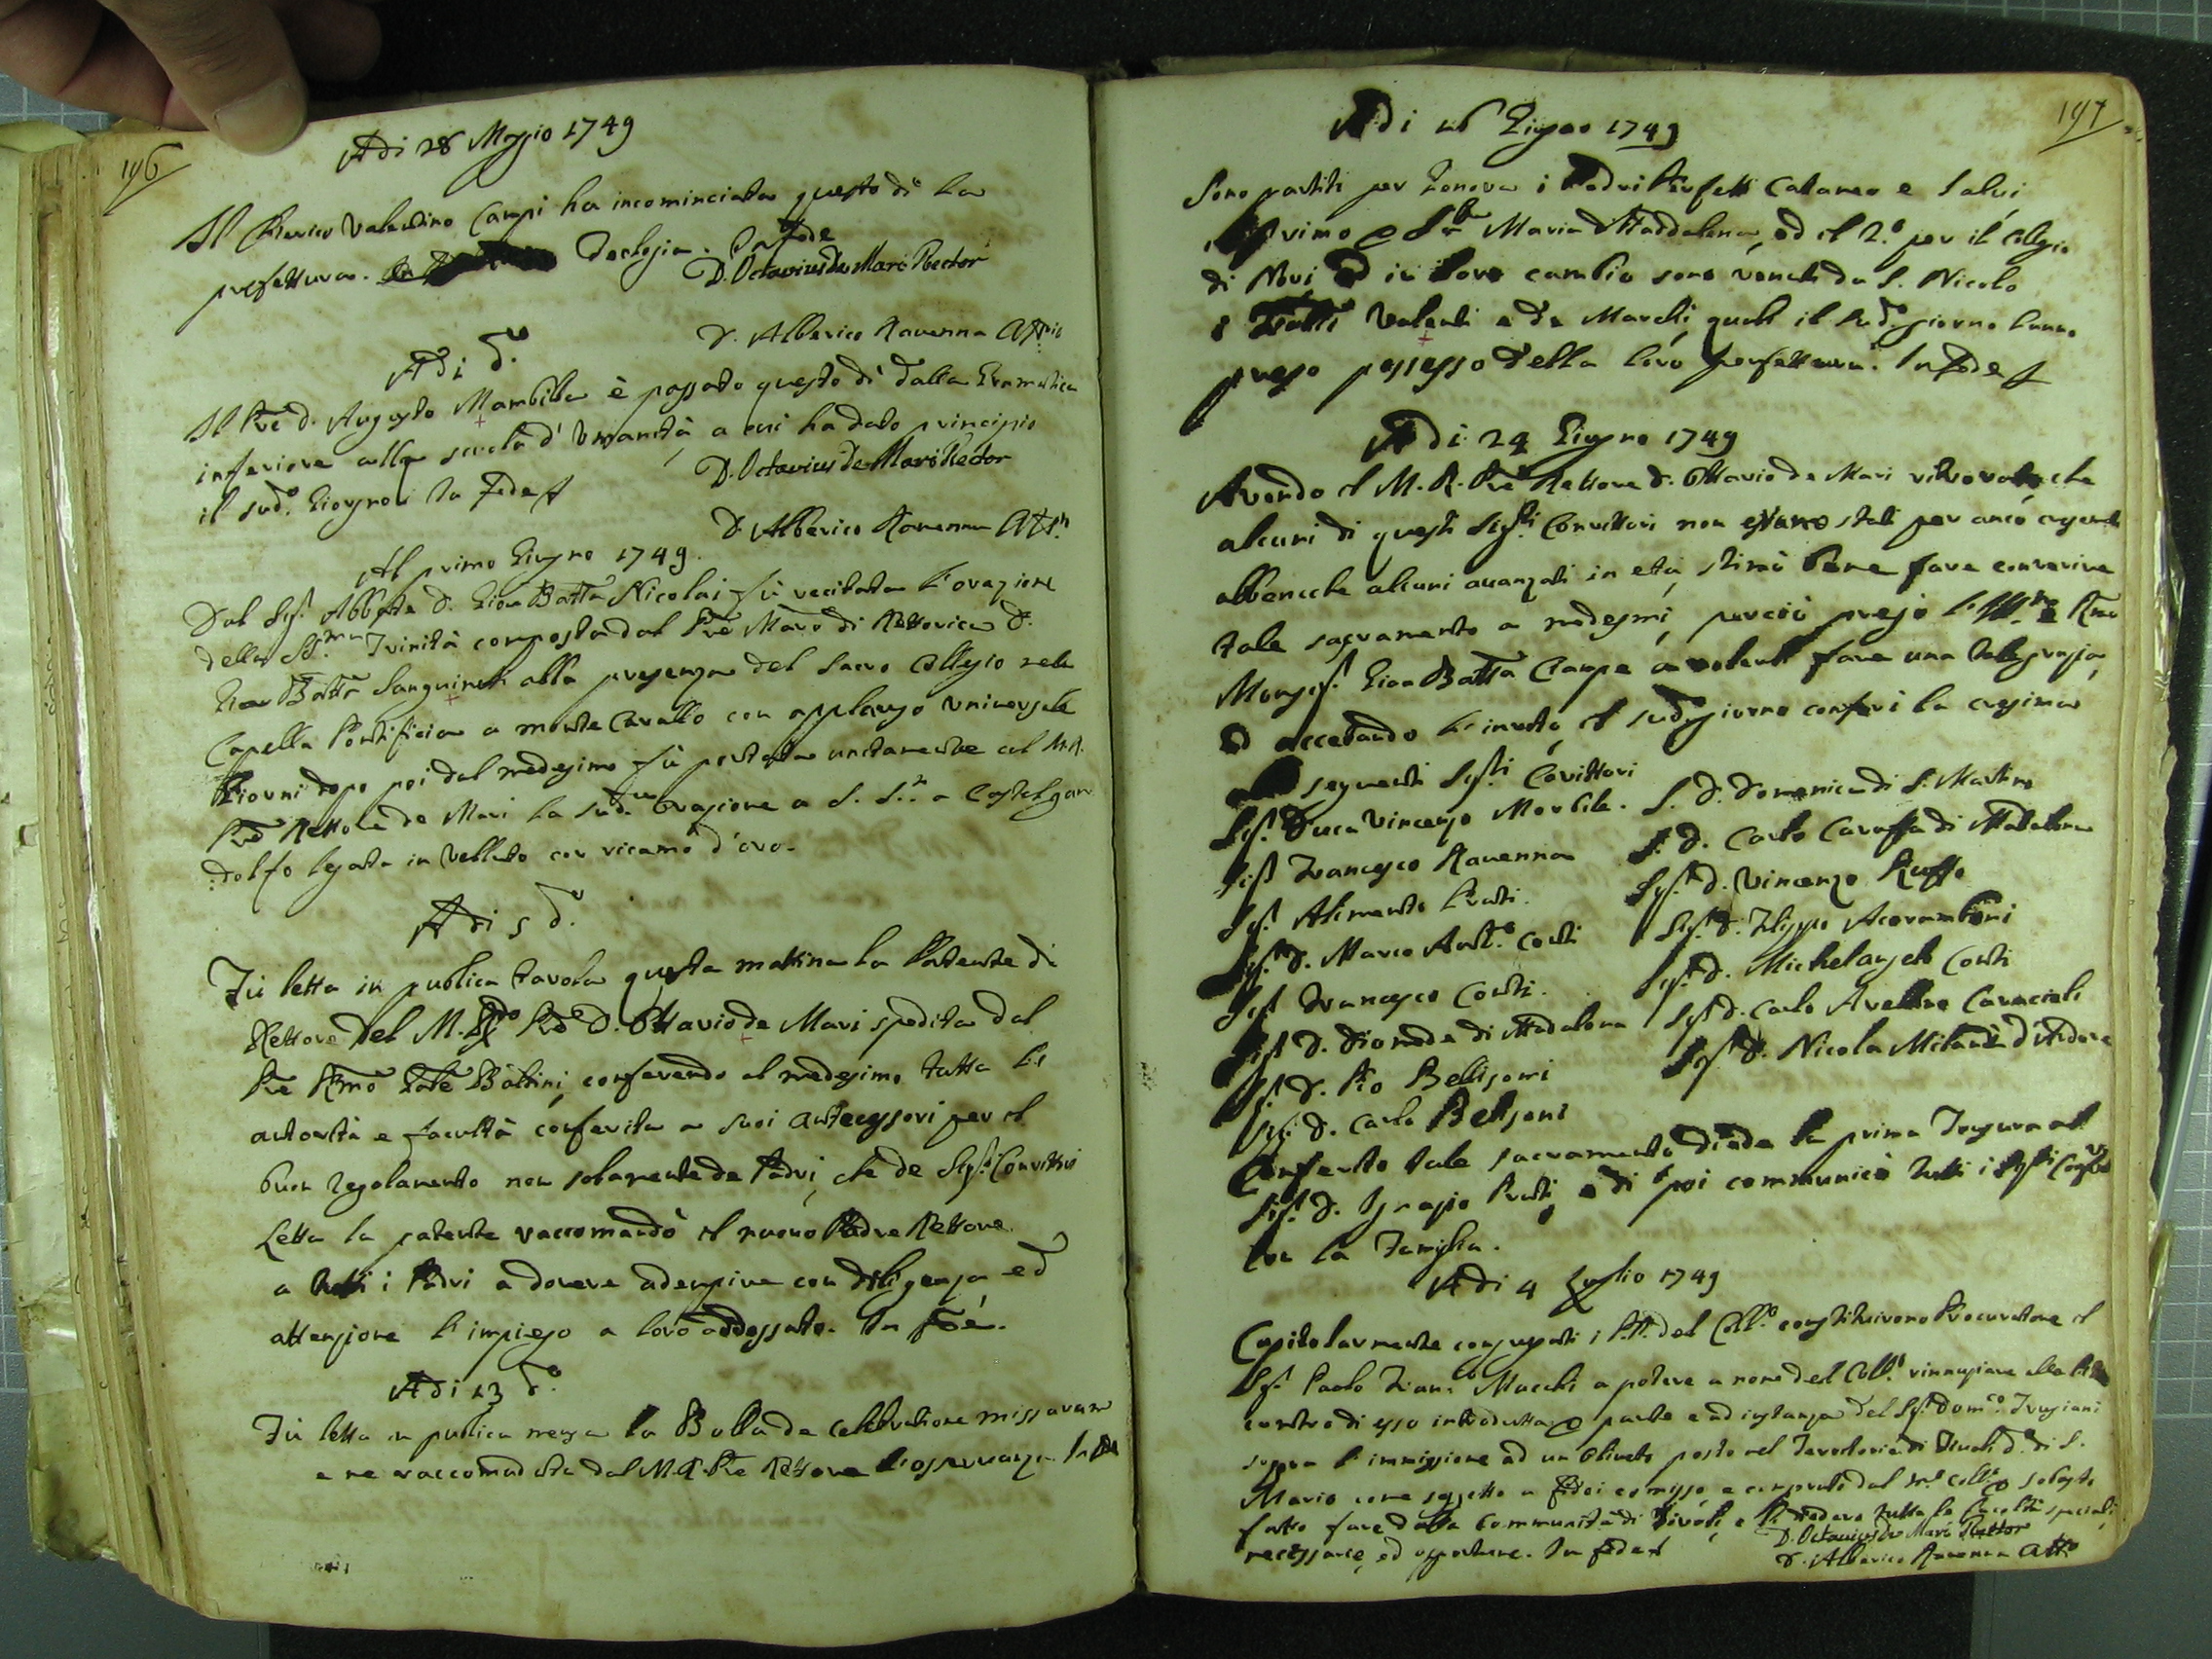 196
Adi 28 Maggio 1749
Il Chierico Valentino Campi ha incominciata questo dì la
prefettura. Teologia. In fede
D. Octavius De Mari Rector
D. Alberico Ravenna Attrio
Adi d.o
Il Pre d. Augusto Mambilla è passato questo dì dalla Gramatica
inferiore alla scuola d'Umanità, a cui ha dato principio
il sud.o Giorno. In Fede
D. Octavius De Mari Rector
D. Alberico Ravenna Att.
Al primo Giugno 1749.
Dal Sig.r Abbate D. Gioa Batta Nicolai fù recitata l'orazione
della SS.ma Trinità composta dal Pre Māro di Rettorica D.
Gioa Batta Sanguineti alla presenza del Sacro Collegio nella
Capella Pontificia a monte Cavallo con applauso universale
Giorni dopo poi dal medesimo fù portata unitamente al M.R.
Pre Rettore de Mari la sud.a orazione a S. S.tà a Castelgan
:dolfo legata in velluto con ricamo d'oro.
Adi 5 d.o
Fù letta in publica tavola questa mattina la Patente di
Rettore del M. R.do Pre D. Ottavio de Mari spedita dal
Pre Rmo Gāle Bāttini, conferendo al medesimo tutta l'
autorità e facultà conferita a suoi antecessori per il
buon regolamento non solamente de Padri, che de Sig.ri Convittori
Letta la patente raccomandò il nuovo Padre Rettore
a tutti i Padri a dovere adempire con diligenza ed
attenzione l'impiego a loro addossato. In fede.
Adi 13 d.o
Fù letta in publica mensa la Bolla de Celebratione missarum
e ne raccomandata dal M.R. Pre Rettore l'osservanza In fede
197
Adi 16 Giugno 1749
Sono partiti per Genova i Padri Prefetti Cataneo e Salvi
il primo Maria Maddalena, ed il 2.o per il Collegio
di Novi, ed in loro cambio sono venuti da S. Nicolo
i Valenti e de Marchi, quali il sud.o giorno hanno
preso possesso della loro prefettura. In fede
Adi 24 Giugno 1749
Avendo il M. R. Pre Rettore D. Ottavio de Mari ritrovato, che
alcuni di questi Sig.ri Convittori non erano stati per anco cresimati
abbenche alcuni avanzati in età, stimò bene fare conferire
tale sacramento a medesmi, perciò pregò l'Ill.mo e Rmo
Monsig.r Gioa Batta Ciampe a volerli fare una tale grazia,
ed accettando l'invito, il sud.o giorno conferì la cresima
seguenti Sig.ri Covittori
Sig.r Duca Vincenzo Morbile. S. D. Domenica di S. Martino
Sig.r Francesco Ravenna S. D. Carlo Caraffa di Madalona
Sig.r Alimento Pruti. Sig.r D. Vincenzo Ruffo
Sig.r D. Marco Ant.o Conti Sig.r D. Filippo Acoramboni
Sig.r Francesco Conti. Sig.r D. Michelangelo Conti
Sig.r D. Diomede di Madalona Sig.r D. Carlo Avellino Caracioli
Sig.r D. Pio Bellisomi Sig.r D. Nicola Milano d'Ardore
Sig.r D. Carlo Belisomi
Conferito tale sacramento diede la prima Tonsura al
Sig.r D. Pruti, e di poi communicò tutti i Sig.ri Convitt
con la Famiglia.
Adi 4 Luglio 1749
Capitolarmente congregati i PP. del Coll.o constituirono Procuratore il
Sig.r Paolo Macchi a potere a nome del Coll.o rinunziare alla lite
contro di esso introdutta parte e ad instanza del Sig.r Dom.co
sopra l'immissione ad un oliveto posto nel Teritorio di Tivoli d.o di S.
Mario come soggetto a fidei comisso e comprato dal n.ro Coll.o
fatto fare dalla Communità di Tivoli, e li diedero tutte le facoltà speciali,
necessarie, ed opportune. In fede
D. Octavius De Mari Rector
D. Alberico Ravenna Att.o